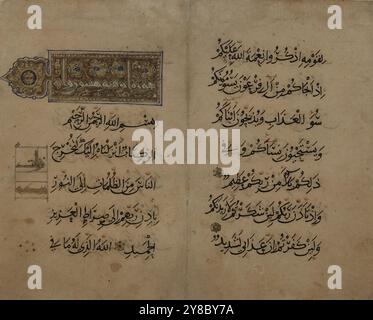 لقومه اذكروا نعمة الله عليكم
اذ انجاكم من ال فرعون يسومونكم
سوء العذاب ويذبحون ابناءكم
ويستحيون نساءكم وفي
ذلكم بلاء من ربكم عظيم
واذ تاذن ربكم لئن شكرتم لازيدنكم
ولئن كفرتم ان عذابي لشديد
بسم الله الرحمن الرحيم
الر كتاب انزلناه اليك لتخرج
الناس من الظلمات الى النور
باذن ربهم الى صراط العزيز
الحميد الله الذي له ما في
alamy - 2Y8BY7A